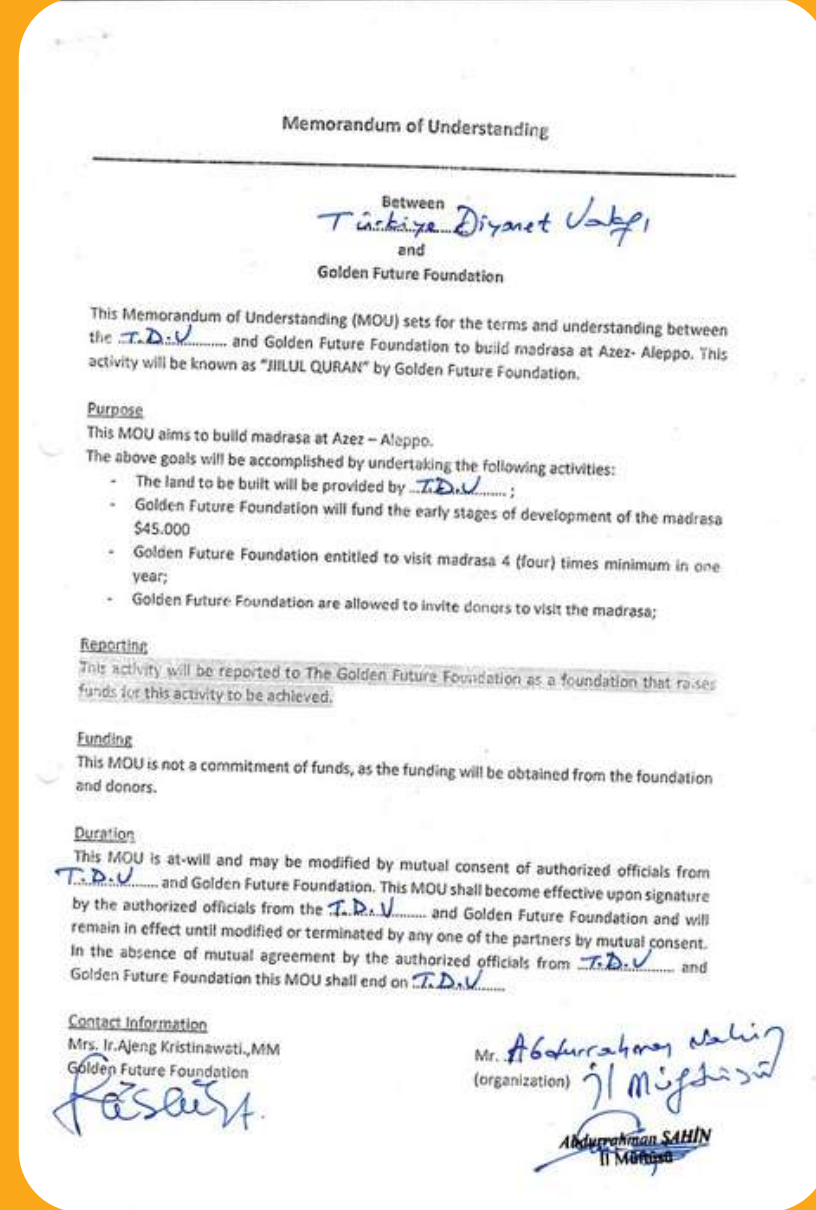 Memorandum of Understanding
Between
Türkiye Diyanet Vakfı
and
Golden Future Foundation
This Memorandum of Understanding (MOU) sets for the terms and understanding between
the T.D.V and Golden Future Foundation to build madrasa at Azez- Aleppo. This
activity will be known as "JIILUL QURAN" by Golden Future Foundation.
Purpose
This MOU aims to build madrasa at Azez – Aleppo.
The above goals will be accomplished by undertaking the following activities:
- The land to be built will be provided by T.D.V ;
- Golden Future Foundation will fund the early stages of development of the madrasa
$45.000
- Golden Future Foundation entitled to visit madrasa 4 (four) times minimum in one
year;
- Golden Future Foundation are allowed to invite donors to visit the madrasa;
Reporting
This activity will be reported to The Golden Future Foundation as a foundation that raises
funds for this activity to be achieved.
Funding
This MOU is not a commitment of funds, as the funding will be obtained from the foundation
and donors.
Duration
This MOU is at-will and may be modified by mutual consent of authorized officials from
T.D.V and Golden Future Foundation. This MOU shall become effective upon signature
by the authorized officials from the T.D.V and Golden Future Foundation and will
remain in effect until modified or terminated by any one of the partners by mutual consent.
In the absence of mutual agreement by the authorized officials from T.D.V and
Golden Future Foundation this MOU shall end on T.D.V
Contact Information
Mrs. Ir.Ajeng Kristinawati.,MM
Golden Future Foundation
Mr. Abdurrahman Şahin
(organization) İl Müftüsü
Abdurrahman ŞAHİN
İl Müftüsü